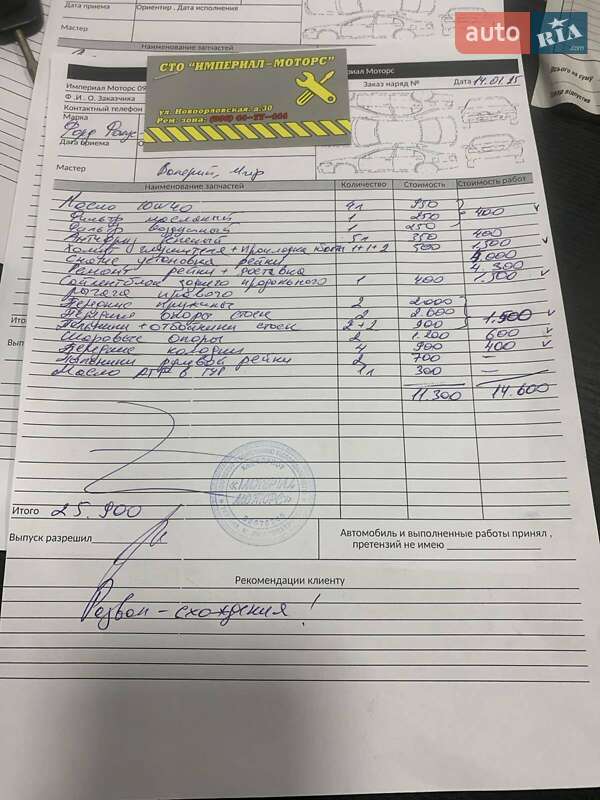 Дата приема
Ориентир . Дата исполнения
Мастер
Наименование запчастей
auto RIA .com
СТО "ИМПЕРИАЛ-МОТОРС"
ул. Новоорловская, д.30
Рем. зона:
Империал Моторс 09
риал Моторс
Ф .И . О. Заказчика
Заказ наряд №
Дата 14.01.25
Контактный телефон
Марка
Форд
Дата приема
Мастер Валерий,
Наименование запчастей Количество Стоимость Стоимость работ
Масло 10W40 4л 950
Фильтр масляный 1 250 400
Фильтр воздушный 1 250
Антифриз зеленый 5л 350 400
Хомут глушителя + прокладка 1+1+2 500 1,500
Снятие установка рейки
Ремонт рейки + доставка 4.300
Сайлентблок заднего продольного 1 400 1.500
рычага правого
Передние пружины 2 2000
Передние опоры стоек 2 2.600 1.500
Пыльники + отбойники стоек 2+2 900
Шаровые опоры 2 1.200 600
Передние колодки 4 900 400
Пыльники рулевой рейки 2 700 —
Масло ATF в ГУР 1л 300 —
11.300 14.600
Итого 25.900
Выпуск разрешил
Автомобиль и выполненные работы принял ,
претензий не имею
Рекомендации клиенту
Развал - схождения!